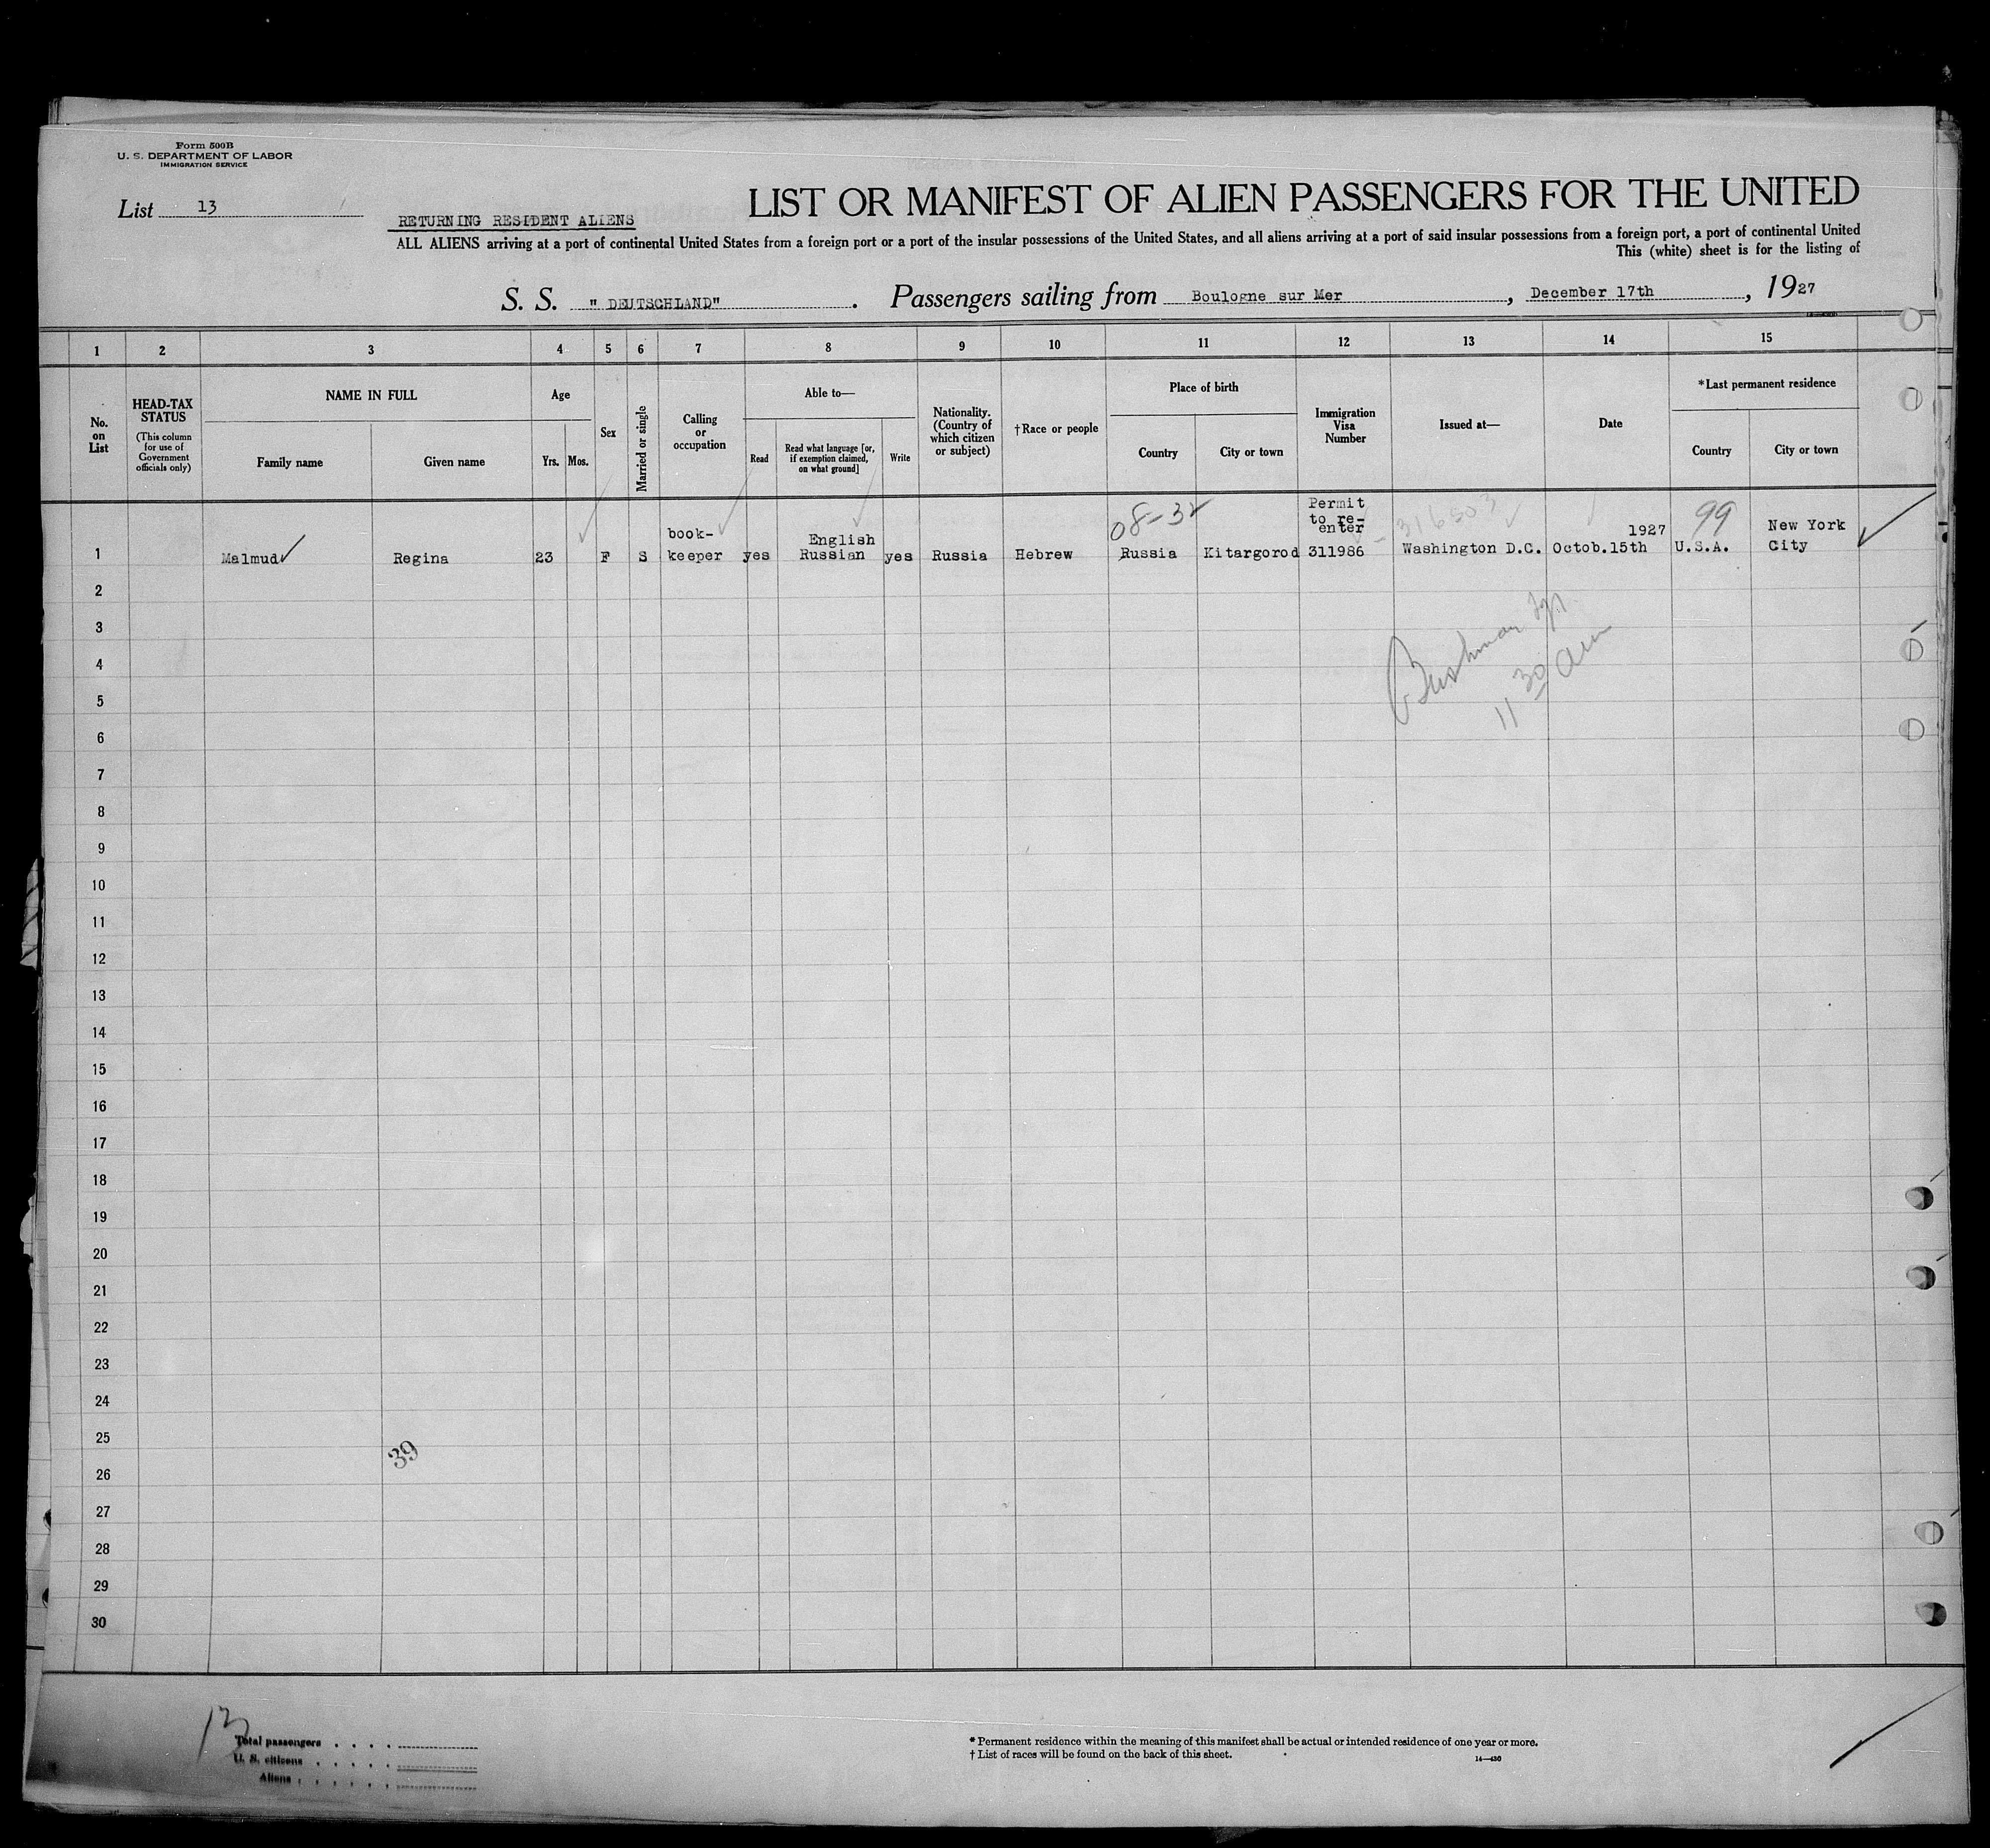 Form 500B
U. S. DEPARTMENT OF LABOR
IMMIGRATION SERVICE
List 13
LIST OR MANIFEST OF ALIEN PASSENGERS FOR THE UNITED
RETURNING RESIDENT ALIENS
ALL ALIENS arriving at a port of continental United States from a foreign port or a port of the insular possessions of the United States, and all aliens arriving at a port of said insular possessions from a foreign port, a port of continental United
This (white) sheet is for the listing of
S. S. " DEUTSCHLAND" . Passengers sailing from Boulogne sur Mer , December 17th , 1927
1 2 3 4 5 6 7 8 9 10 11 12 13 14 15
No. on List
HEAD-TAX STATUS
(This column for use of Government officials only)
NAME IN FULL
Family name
Given name
Age
Yrs.
Mos.
Sex
Married or single
Calling or occupation
Able to—
Read
Read what language [or, if exemption claimed, on what ground]
Write
Nationality. (Country of which citizen or subject)
†Race or people
Place of birth
Country
City or town
Immigration Visa Number
Issued at—
Date
*Last permanent residence
Country
City or town
08-32 Permit to re-enter 316503 99
book- English 1927 New York
1 Malmud Regina 23 F S keeper yes Russian yes Russia Hebrew Russia Kitargorod 311986 Washington D.C. Octob.15th U.S.A. City
2
3
4
Bushman
5
11 30 am
6
7
8
9
10
11
12
13
14
15
16
17
18
19
20
21
22
23
24
25
39
26
27
28
29
30
13
Total passengers
U. S. citizens
Aliens
* Permanent residence within the meaning of this manifest shall be actual or intended residence of one year or more.
† List of races will be found on the back of this sheet.
14—430